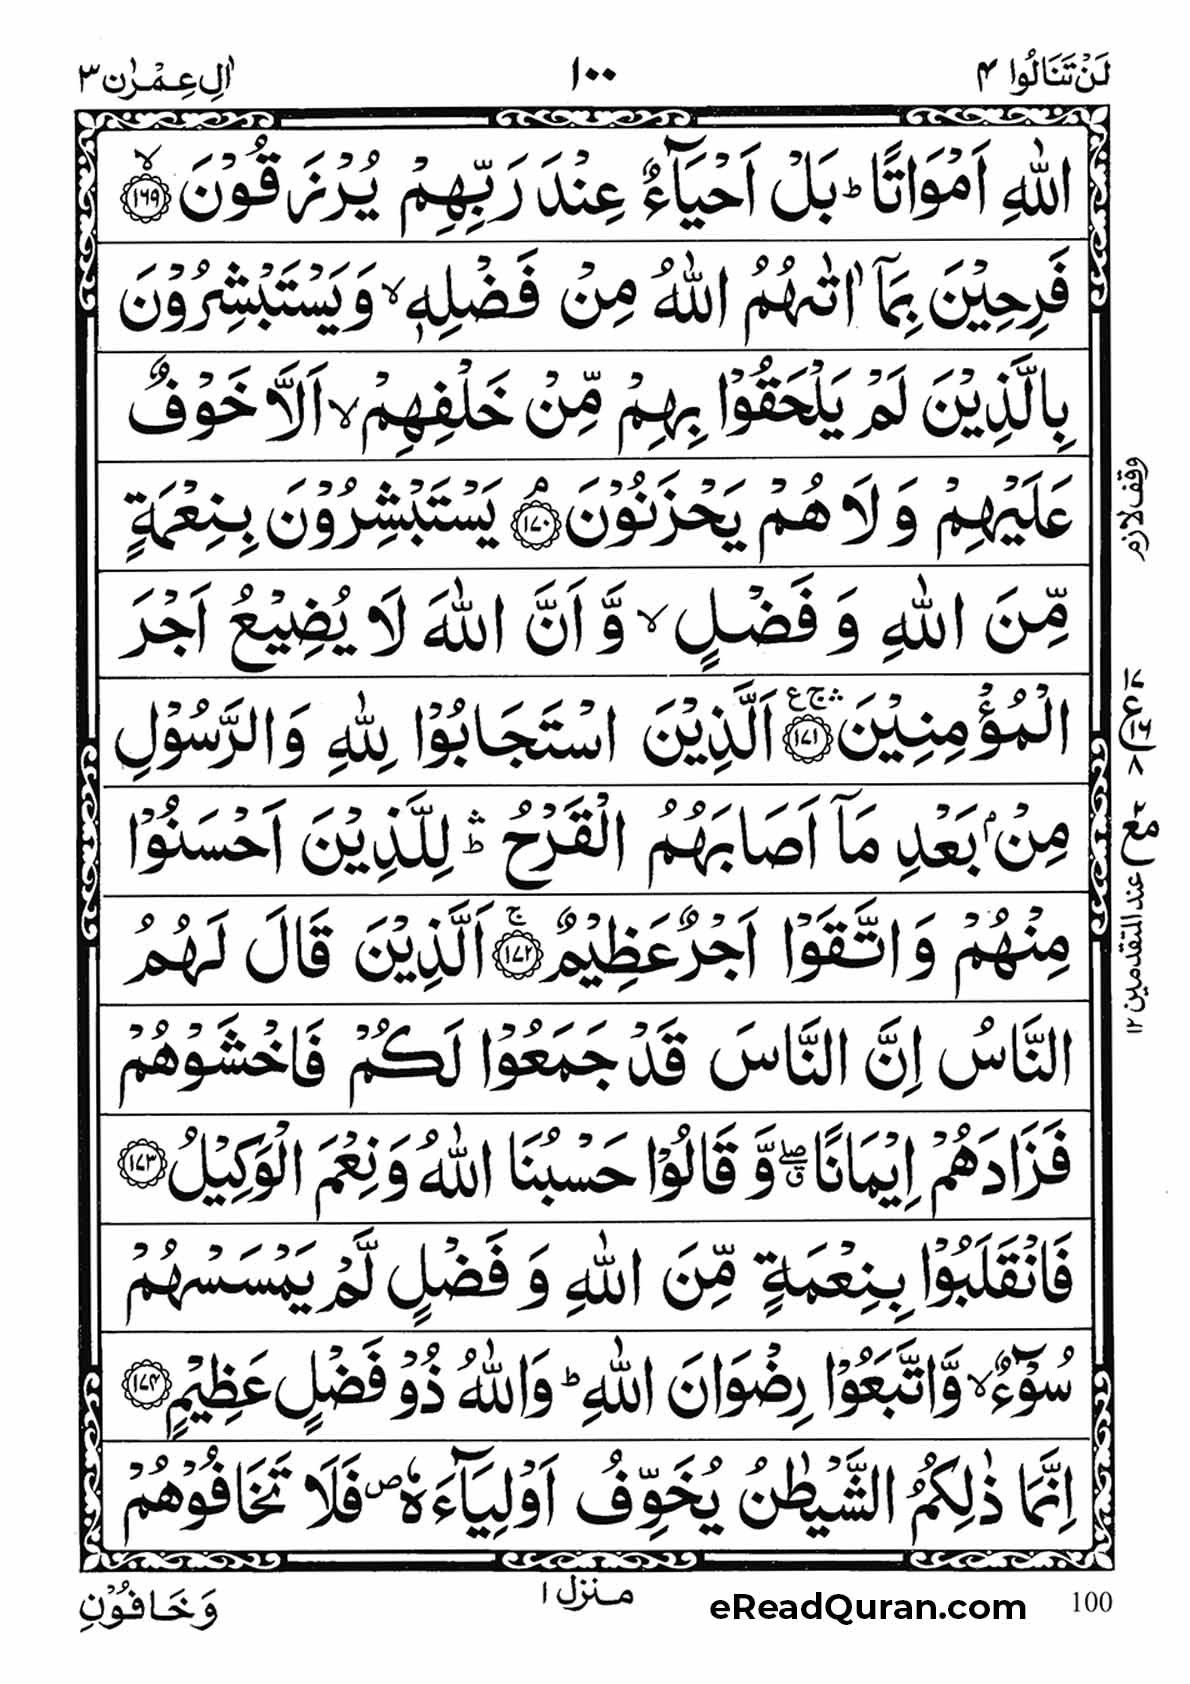 لَنْ تَنَالُوا ۴ ١٠٠ اٰلِ عِمْرٰن ۳
اللّٰهِ اَمْوَاتًا ؕ بَلْ اَحْيَآءٌ عِنْدَ رَبِّهِمْ يُرْزَقُوْنَ ۙ﴿۱۶۹﴾
فَرِحِيْنَ بِمَاۤ اٰتٰىهُمُ اللّٰهُ مِنْ فَضْلِهٖ ۙ وَيَسْتَبْشِرُوْنَ
بِالَّذِيْنَ لَمْ يَلْحَقُوْا بِهِمْ مِّنْ خَلْفِهِمْ ۙ اَلَّا خَوْفٌ
عَلَيْهِمْ وَلَا هُمْ يَحْزَنُوْنَ ۘ﴿۱۷۰﴾ يَسْتَبْشِرُوْنَ بِنِعْمَةٍ
مِّنَ اللّٰهِ وَفَضْلٍ ۙ وَّاَنَّ اللّٰهَ لَا يُضِيْعُ اَجْرَ
الْمُؤْمِنِيْنَ ۛۚ ع ﴿۱۷۱﴾ اَلَّذِيْنَ اسْتَجَابُوْا لِلّٰهِ وَالرَّسُوْلِ
مِنْۢ بَعْدِ مَاۤ اَصَابَهُمُ الْقَرْحُ ؕۛ لِلَّذِيْنَ اَحْسَنُوْا
مِنْهُمْ وَاتَّقَوْا اَجْرٌ عَظِيْمٌ ۚ﴿۱۷۲﴾ اَلَّذِيْنَ قَالَ لَهُمُ
النَّاسُ اِنَّ النَّاسَ قَدْ جَمَعُوْا لَكُمْ فَاخْشَوْهُمْ
فَزَادَهُمْ اِيْمَانًا ۖۗ وَّقَالُوْا حَسْبُنَا اللّٰهُ وَنِعْمَ الْوَكِيْلُ ﴿۱۷۳﴾
فَانْقَلَبُوْا بِنِعْمَةٍ مِّنَ اللّٰهِ وَفَضْلٍ لَّمْ يَمْسَسْهُمْ
سُوْٓءٌ ۙ وَّاتَّبَعُوْا رِضْوَانَ اللّٰهِ ؕ وَاللّٰهُ ذُوْ فَضْلٍ عَظِيْمٍ ﴿۱۷۴﴾
اِنَّمَا ذٰلِكُمُ الشَّيْطٰنُ يُخَوِّفُ اَوْلِيَآءَهٗ ص فَلَا تَخَافُوْهُمْ
وقف لازم
۱۷ ع ۱۶ ۸
مع عند المتقدمين ۱۲
100 eReadQuran.com منزل ١ وَخَافُوْنِ